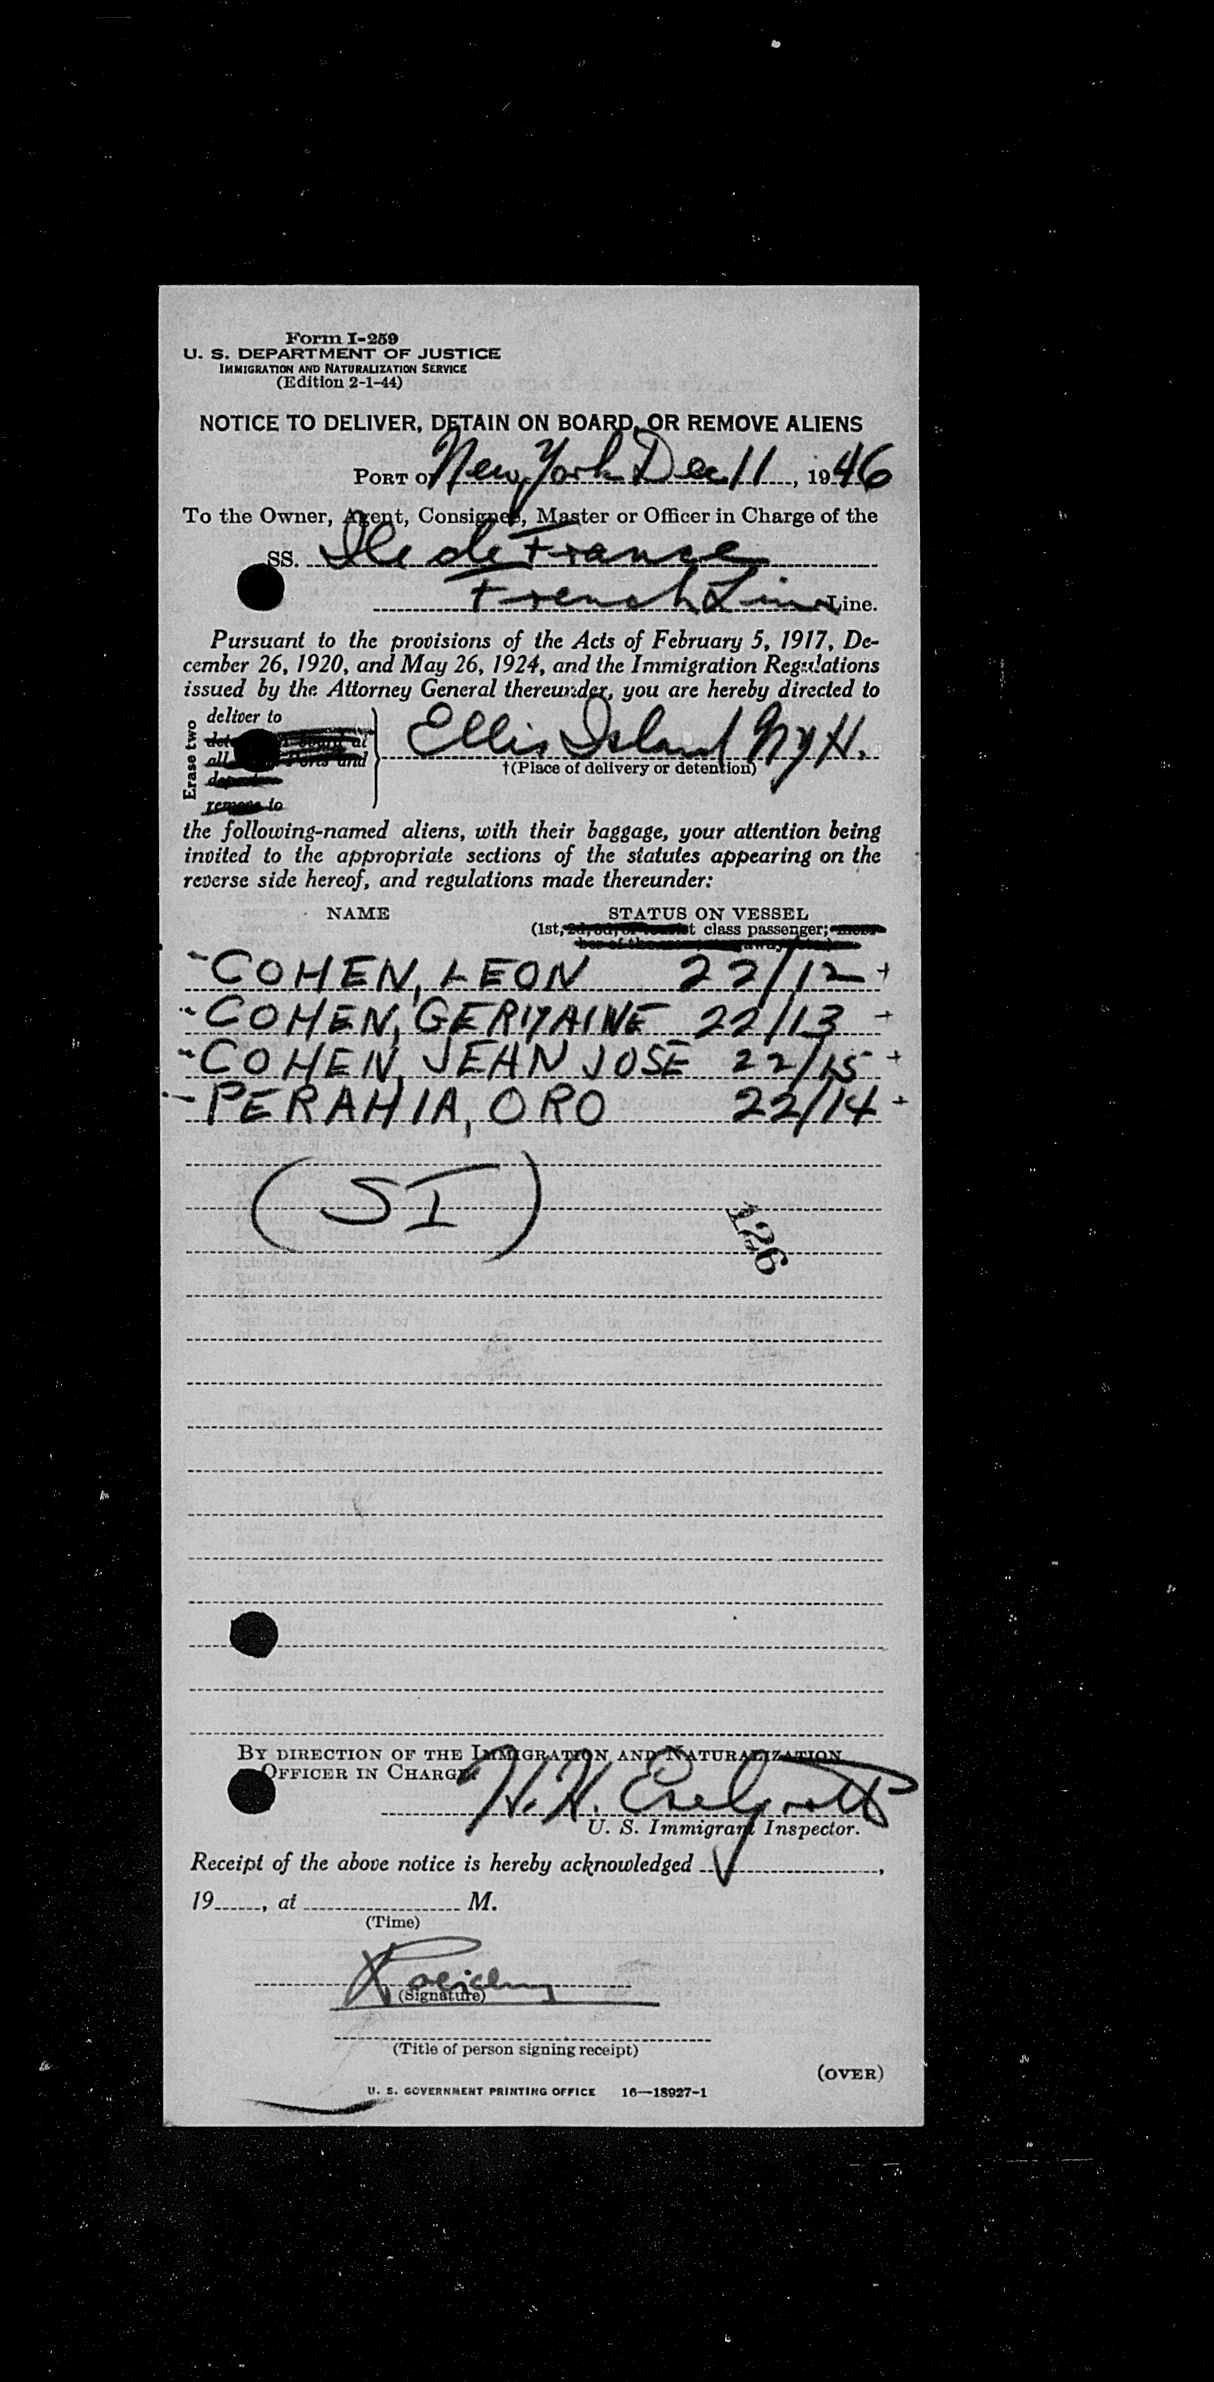 Form I-259
U. S. DEPARTMENT OF JUSTICE
IMMIGRATION AND NATURALIZATION SERVICE
(Edition 2-1-44)
NOTICE TO DELIVER, DETAIN ON BOARD, OR REMOVE ALIENS
PORT OF New York Dec 11, 1946
To the Owner, Agent, Consignee, Master or Officer in Charge of the
SS. Ile de France
French Line Line.
Pursuant to the provisions of the Acts of February 5, 1917, De-
cember 26, 1920, and May 26, 1924, and the Immigration Regulations
issued by the Attorney General thereunder, you are hereby directed to
Erase two
deliver to
board at
all Ports and
remove to
Ellis Island NYH.
†(Place of delivery or detention)
the following-named aliens, with their baggage, your attention being
invited to the appropriate sections of the statutes appearing on the
reverse side hereof, and regulations made thereunder:
NAME STATUS ON VESSEL
(1st, 2d, 3d, or tourist class passenger; mem-
ber of the
- COHEN, LEON 22/12 +
- COHEN, GERMAINE 22/13 +
- COHEN, JEAN JOSE 22/15 +
- PERAHIA, ORO 22/14 +
(SI)
126
BY DIRECTION OF THE IMMIGRATION AND NATURALIZATION
OFFICER IN CHARGE:
H. H.
U. S. Immigrant Inspector.
Receipt of the above notice is hereby acknowledged
19, at M.
(Time)
(Signature)
(Title of person signing receipt)
(OVER)
U. S. GOVERNMENT PRINTING OFFICE 16—18927-1